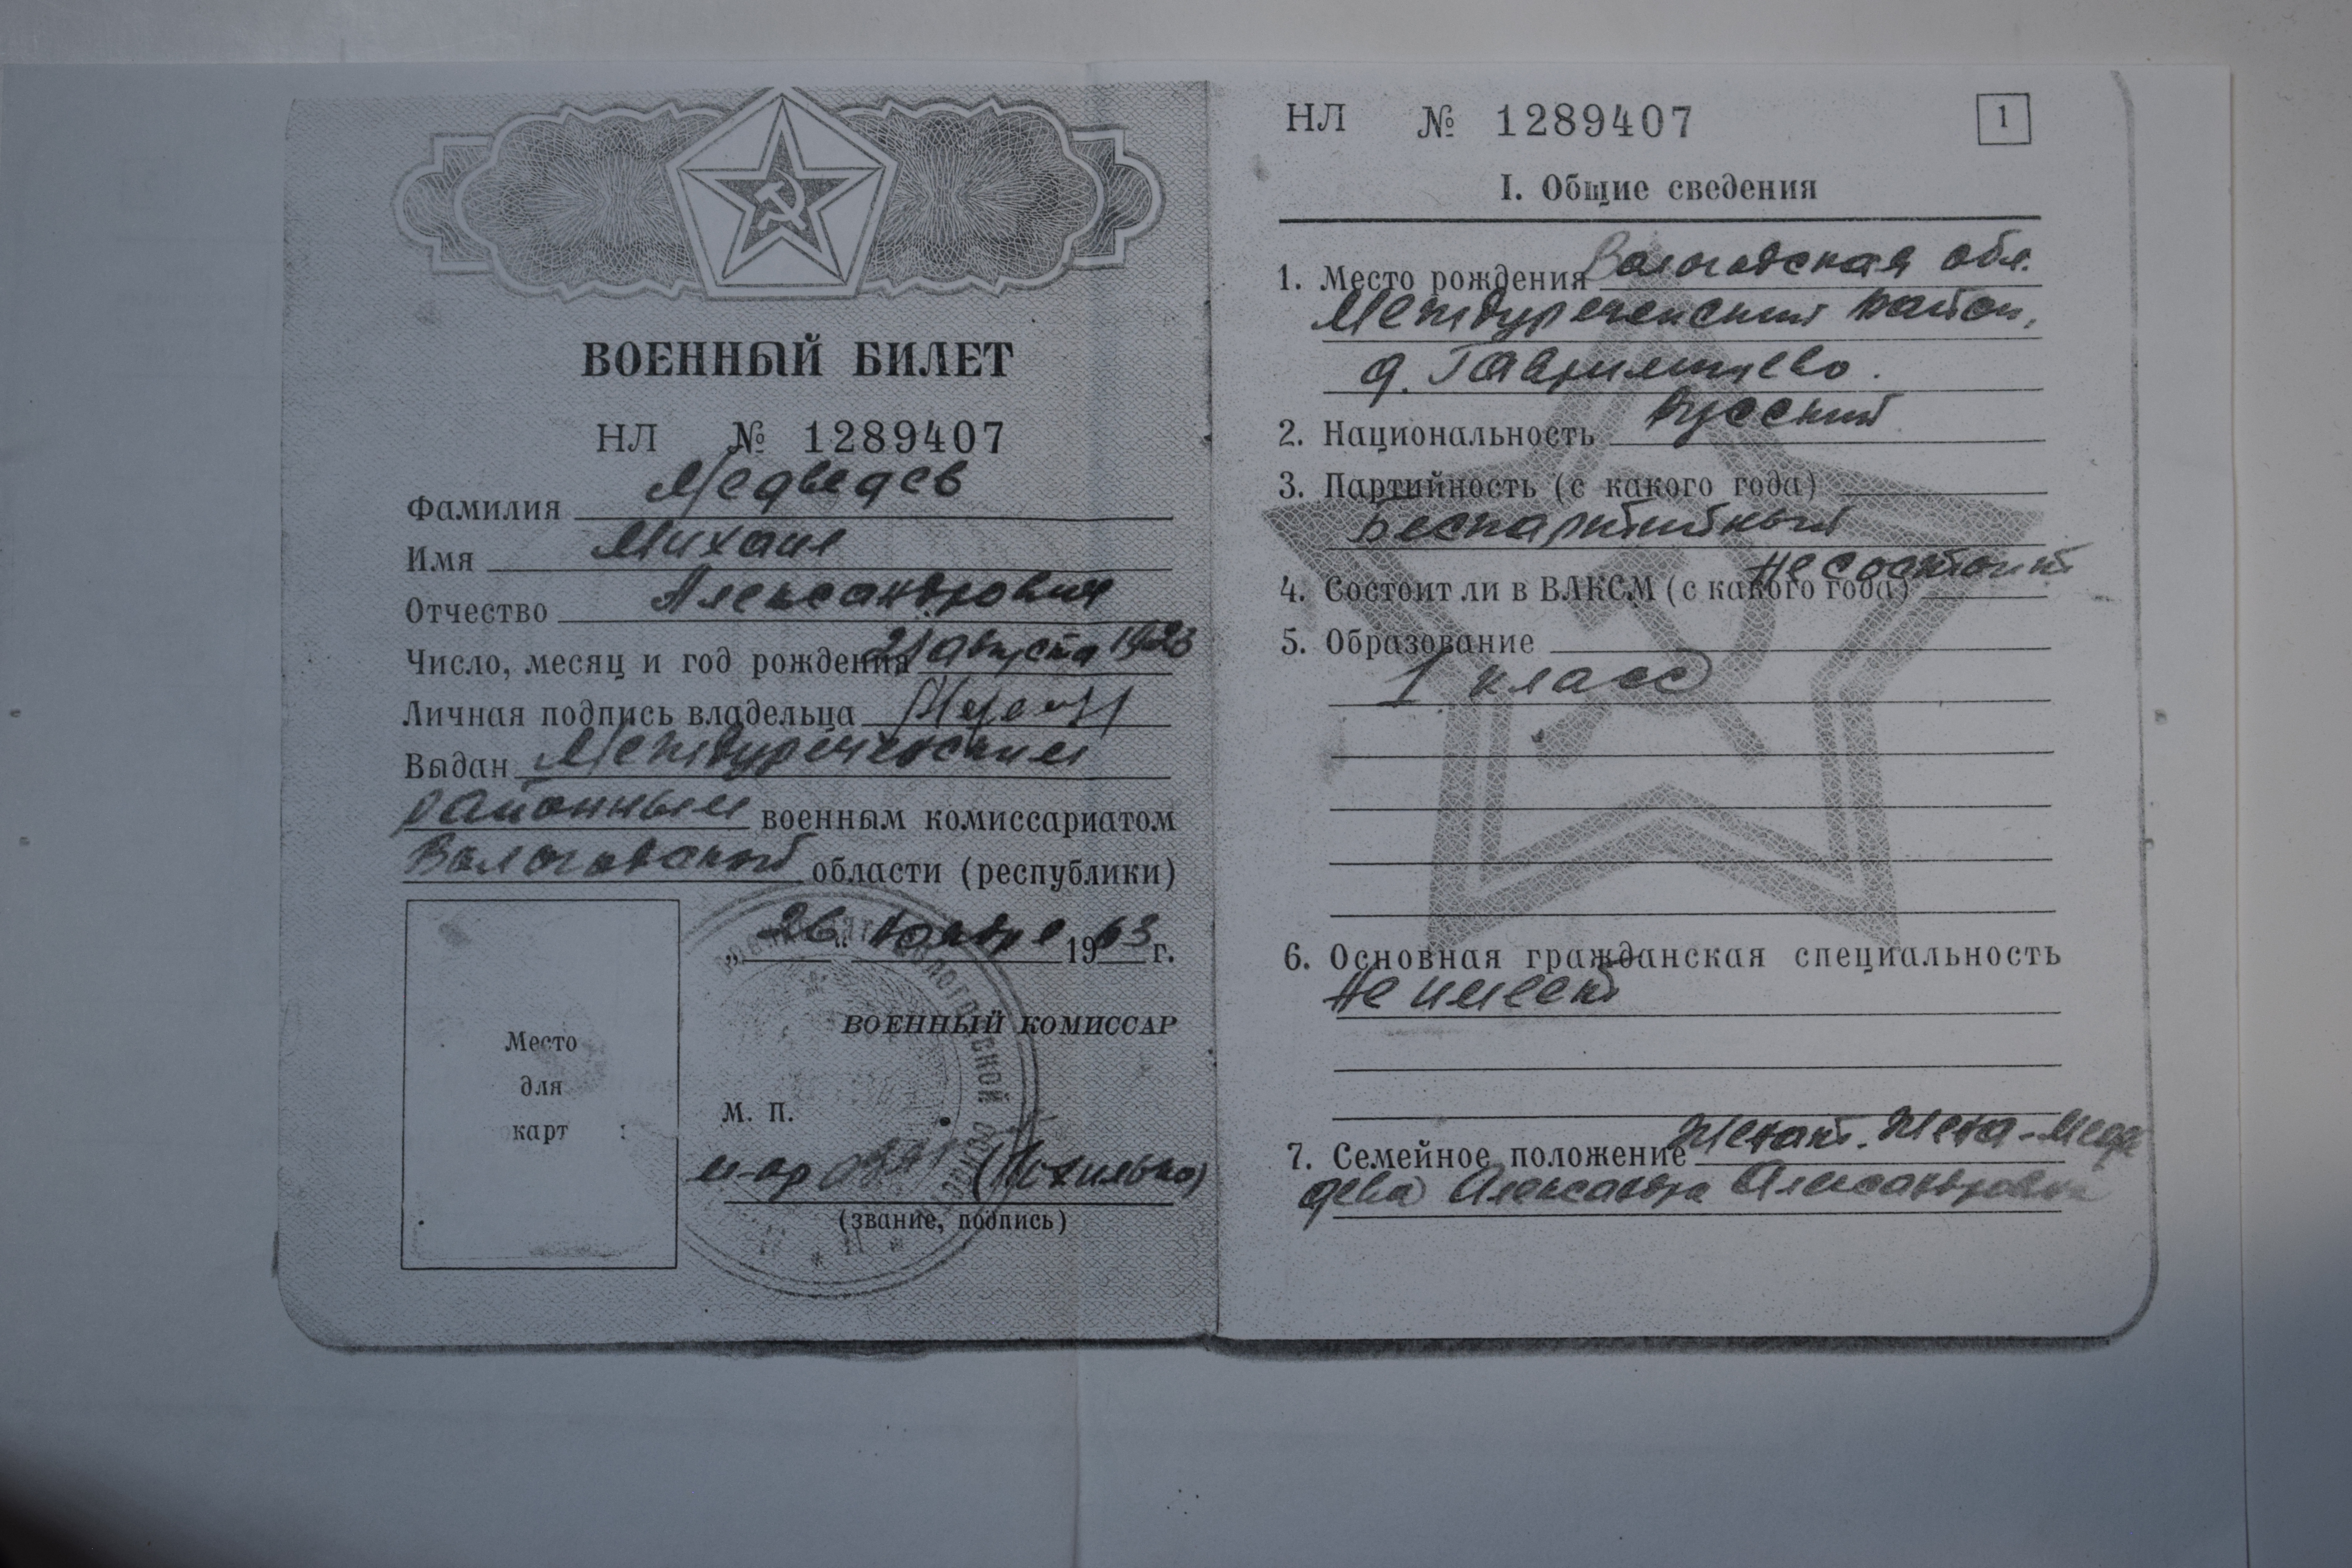 ВОЕННЫЙ БИЛЕТ
НЛ № 1289407
Фамилия Медведев
Имя Михаил
Отчество Александрович
Число, месяц и год рождения 21 августа 1923
Личная подпись владельца
Выдан Междуреченским
районным военным комиссариатом
Вологодской области (республики)
„26“ ноября 1963 г.
ВОЕННЫЙ КОМИССАР
Место
для
карт
М. П.
м-ор
(звание, подпись)
НЛ № 1289407
1
I. Общие сведения
1. Место рождения Вологодская обл.
Междуреченский район,
д.
2. Национальность Русский
3. Партийность (с какого года)
Беспартийный
4. Состоит ли в ВЛКСМ (с какого года) Не состоит
5. Образование
1 класс
6. Основная гражданская специальность
Не имеет
7. Семейное положение Женат. Жена - Медве
дева Александра Александровна